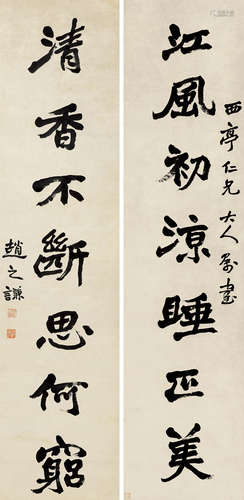 西亭仁兄大人
江風初涼睡正美
清香不斷思何窮
趙之謙